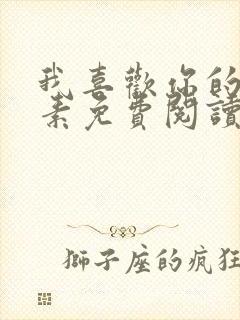 我喜歡你的
素免費閱讀
獅子座的疯狂